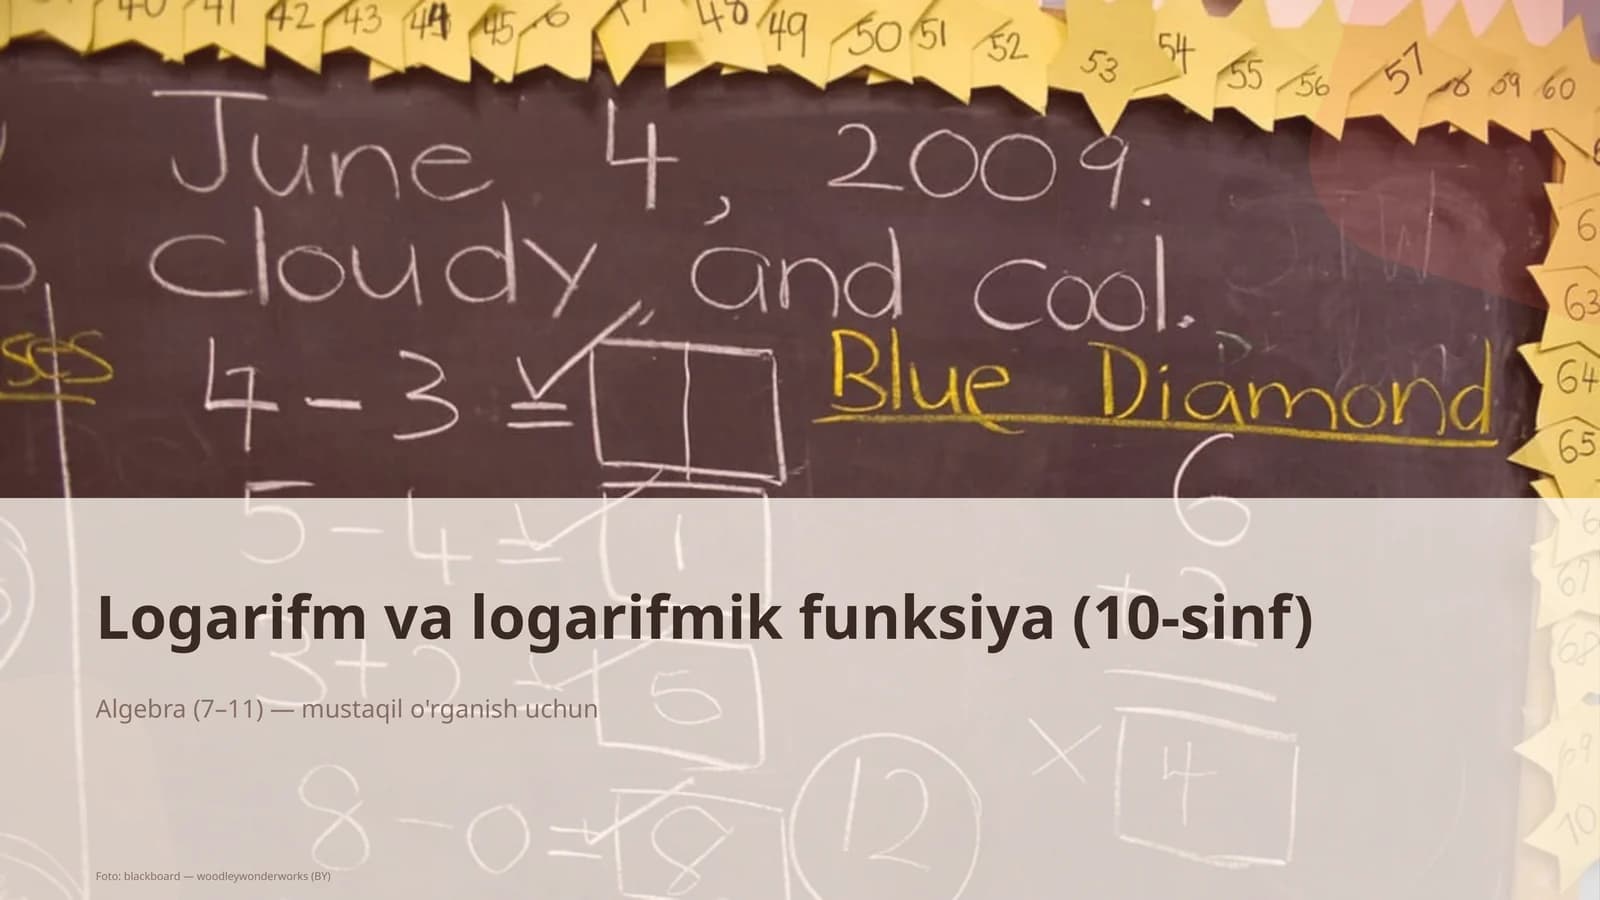 40 41 42 43 44 45 48 49 50 51 52 53 54 55 56 57 58 59 60
June 4, 2009.
Cloudy, and cool.
4 - 3 =
Blue Diamond
5 - 4 = 1
6
63
64
65
+ 2
67
68
Logarifm va logarifmik funksiya (10-sinf)
3 + 5
Algebra (7–11) — mustaqil o'rganish uchun
× 4
69
8 - 0 = 8
12
70
Foto: blackboard — woodleywonderworks (BY)